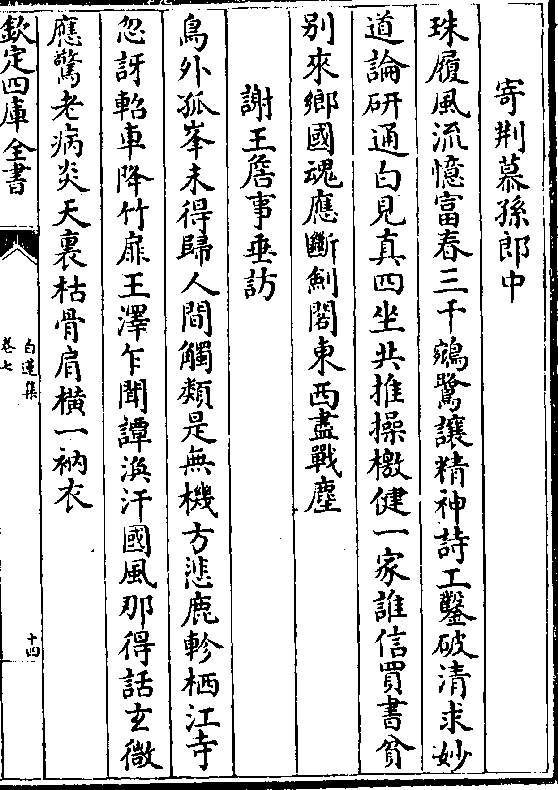 寄荆慕孫郎中
珠履風流憶富春三千鵷鷺讓精神詩工鑿破清求妙
道論研通白見真四坐共推操檄健一家誰信買書貧
别來鄉國魂應斷劍閣東西盡戰塵
謝王詹事垂訪
鳥外孤峯未得歸人間觸類是無機方悲鹿軫栖江寺
忽訝軺車降竹扉王澤乍聞譚渙汗國風那得話玄微
應驚老病炎天裏枯骨肩橫一衲衣
欽定四庫全書
白蓮集
卷七
十四